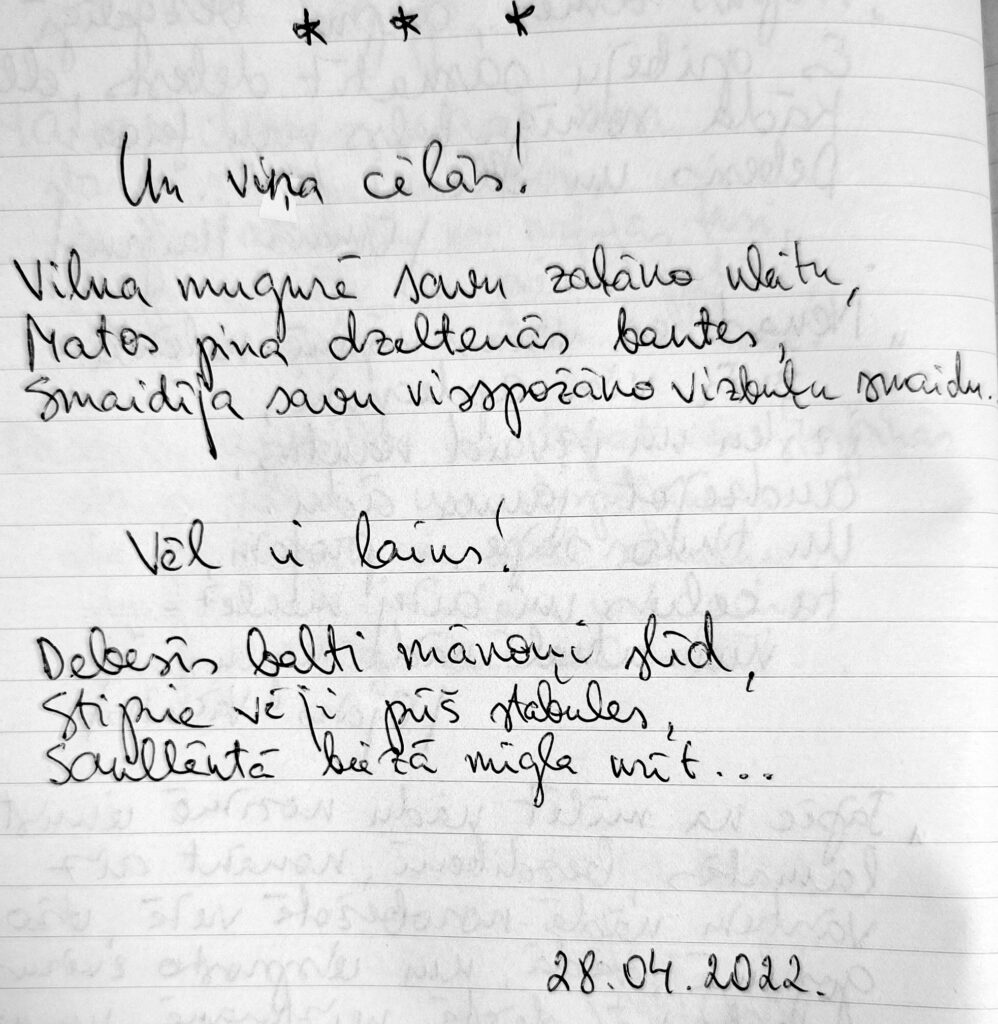 * * *
Un viņa cēlās!
Vilka mugurē savu zaļāko kleitu,
Matos pina dzeltenās bantes,
Smaidīja savu visspožāko vizbuļu smaidu.
Vēl ir laiks!
Debesīs balti mākoņi slīd,
Stiprie vēji pūš stabules,
Saullēktā biezā migla krīt...
28.04.2022.